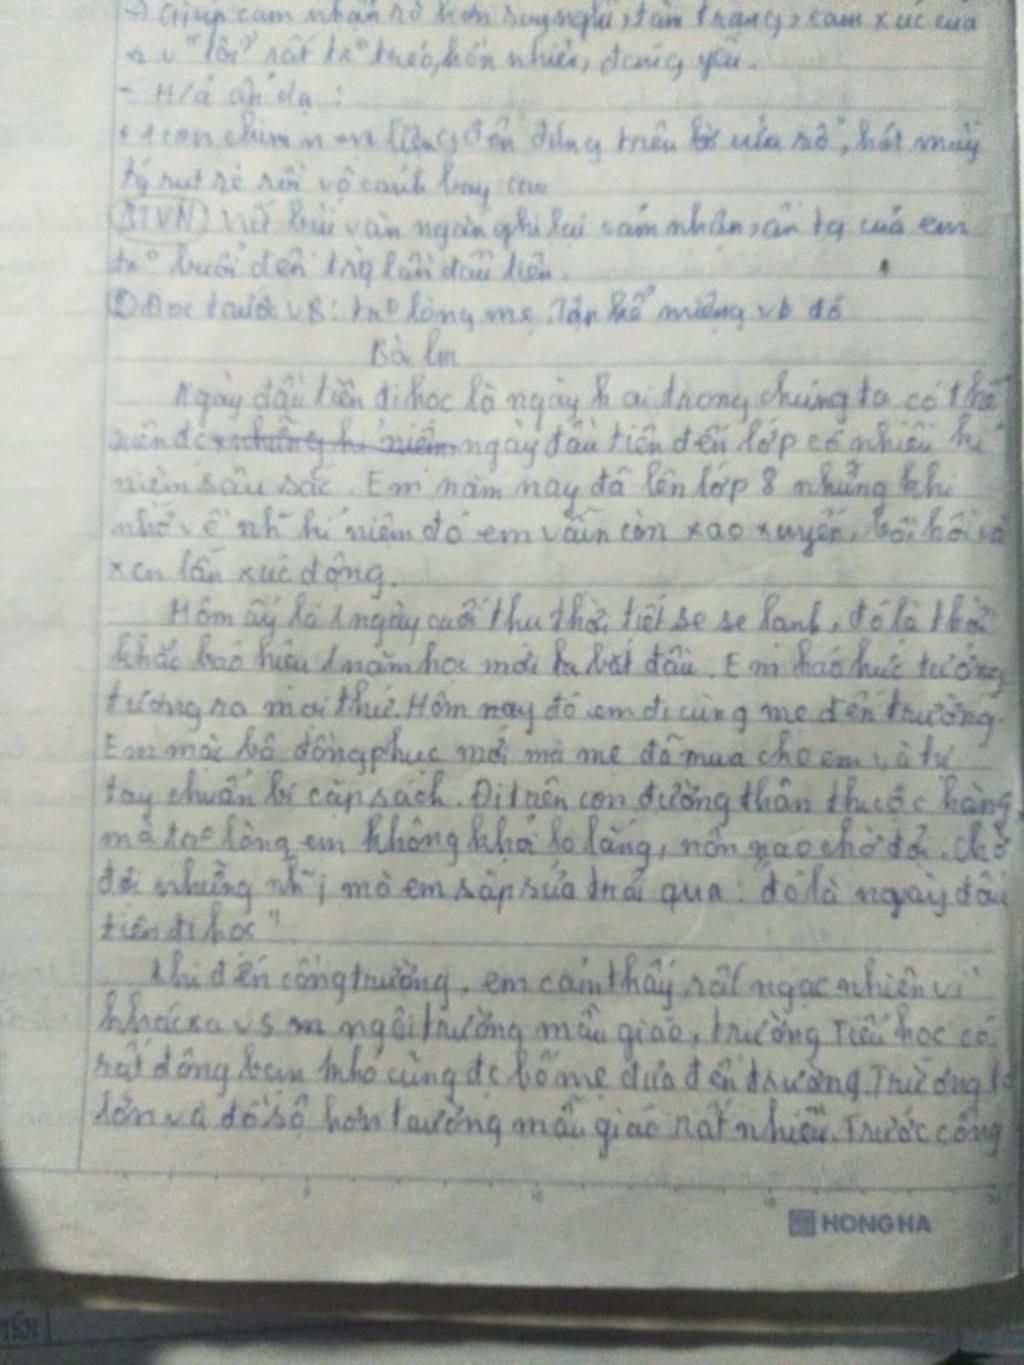 → Giúp cảm nhận rõ hơn suy nghĩ, tâm trạng, cảm xúc của
n v "tôi" rất tr° trẻo, hồn nhiên, đáng yêu.
- H/ả ẩn dụ :
+ 1 con chim n-n liệng đến đứng trên bờ cửa sổ, hót mấy
rụt rè rồi vỗ cánh bay cao
BTVN Viết bài văn ngắn ghi lại cảm nhận, ấn tg của em
tr° buổi đến trg lần đầu tiên.
Đọc trước VB: tr° lòng mẹ. Tập kể miệng vb đó
Bà lm
Ngày đầu tiên đi học là ngày k ai trong chúng ta có thể
ngày đầu tiên đến lớp có nhiều kỉ
niệm sâu sắc. Em năm nay đã lên lớp 8 nhưng khi
nhớ về nh~ kỉ niệm đó em vẫn còn xao xuyến, bồi hồi và
xen lẫn xúc động.
Hôm ấy là 1 ngày cuối thu thời tiết se se lạnh, đó là thời
khắc báo hiệu 1 năm học mới ta bắt đầu. Em háo hức tưởng
tượng ra mọi thứ. Hôm nay đó em đi cùng mẹ đến trường.
Em mặc bộ đồng phục mới mà mẹ đã mua cho em và tự
tay chuẩn bị cặp sách. Đi trên con đường thân thuộc hàng
mà tr° lòng em không khỏi lo lắng, nôn nao chờ đợi. Chờ
đợi những nh~ j mà em sắp sửa trải qua: "đó là ngày đầu
tiên đi học"
Khi đến cổng trường, em cảm thấy rất ngạc nhiên vì
khác xa vs ngôi trường mẫu giáo, trường Tiểu học có
rất đông bạn nhỏ cũng đc bố mẹ đưa đến trường. Trường to
lớn và đồ sộ hơn trường mẫu giáo rất nhiều. Trước cổng
HONG HA